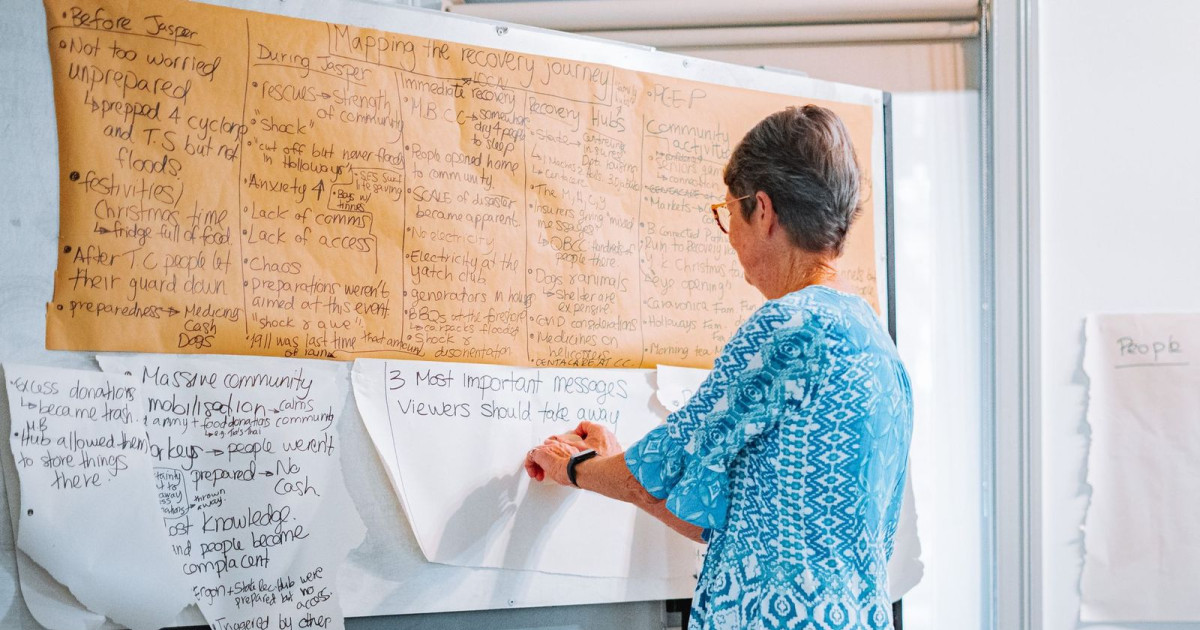 Mapping the recovery journey
Before Jasper
• Not too worried
unprepared
↳ prepped 4 cyclone
and T.S but not
floods.
• festivities/
Christmas time
↳ fridge full of food.
• After T.C people let
their guard down
• preparedness → Medicine
Cash
Dogs
During Jasper
• rescues → Strength
of community
• "Shock"
• "cut off but never flooded
in Holloways"
• Anxiety ↑
• SES surf
life saving
• Boys w/
tinnies
• Lack of comms
• Lack of access
• Chaos
• preparations weren't
aimed at this event
"shock & awe"
1911 was last time that amount
of rain
LOCAL
Immediate recovery
• M.B.C.C → somewhere
dry 4 people
to sleep
• People opened home
to community.
• SCALE of disaster
became apparent.
• No electricity
• Electricity at the
yatch club
• generators in house
• BBQs at the foreshore
↳ carparks flooded
• Shock &
disorientation
Recovery Hubs
• The M, H, C, Y
• Insurers giving "mixed
messages"
↳ QBCC hundreds of
people there.
• Dogs & animals
↳ Shelder are
expensive
• COVID considerations
• Medicines on
helicopters
• CENTACARE AT C.C.
• PCEP
Community
activitie
↳ connection
• Markets →
Run to Recovery
Christmas
eye opening
• Caravonica Fam.
• Holloways Fam.
• Morning tea
Excess donations
↳ became trash.
M.B
• Hub allowed them
to store things
there.
Massive community
mobilisation → cairns
army + food donations community
keys → people weren't
prepared → No
Cash.
thrown
away
Lost Knowledge.
and people become
complacent
+ State Rec. Hub were
prepared but no
access.
Triggered by other
3 Most important messages
Viewers should take away
People